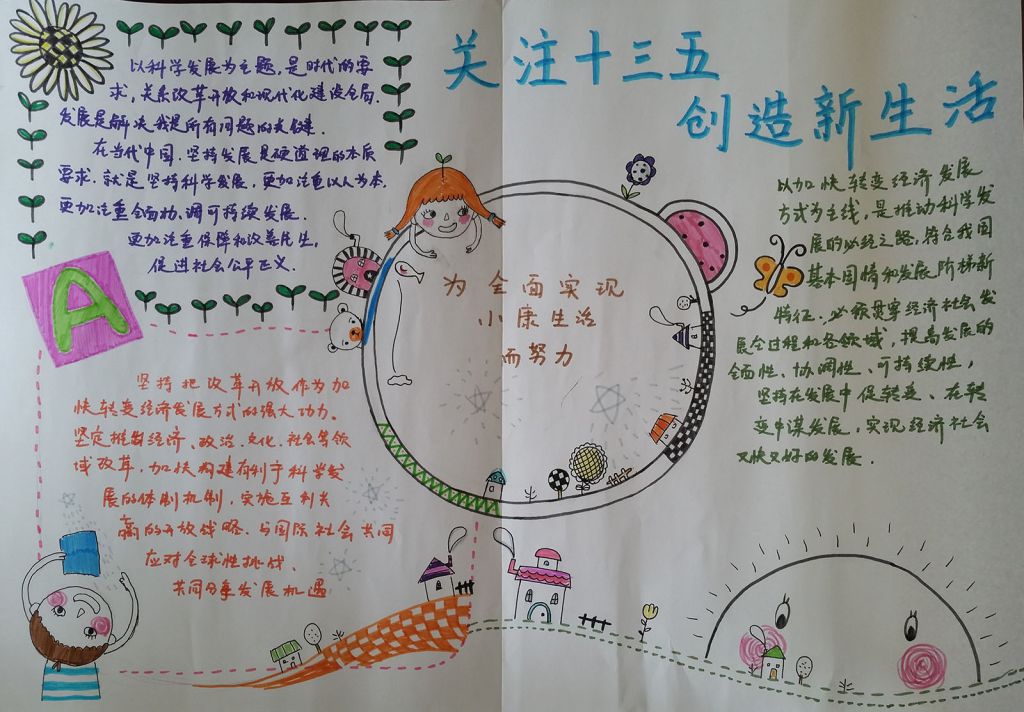 关注十三五
创造新生活
以科学发展为主题，是时代的要
求，关系改革开放和现代化建设全局．
发展是解决我是所有问题的关键．
在当代中国．坚持发展是硬道理的本质
要求．就是坚持科学发展．更加注重以人为本．
更加注重全面协．调可持续发展．
更加注重保障和改善民生，
促进社会公平正义．
A
为全面实现
小康生活
而努力
以加快转变经济发展
方式为主线，是推动科学发
展的必经之路，符合我国
基本国情和发展阶梯新
特征．必须贯穿经济社会发
展全过程和各领域，提高发展的
全面性、协调性、可持续性，
坚持在发展中促转变、在转
变中谋发展，实现经济社会
又快又好的发展．
坚持把改革开放作为加
快转变经济发展方式的强大功力、
坚定推出经济、政治、文化、社会等领
域改革．加快构建有利于科学发
展的体制机制，实施互利共
赢的开放战略．与国际社会共同
应对全球性挑战、
共同分享发展机遇